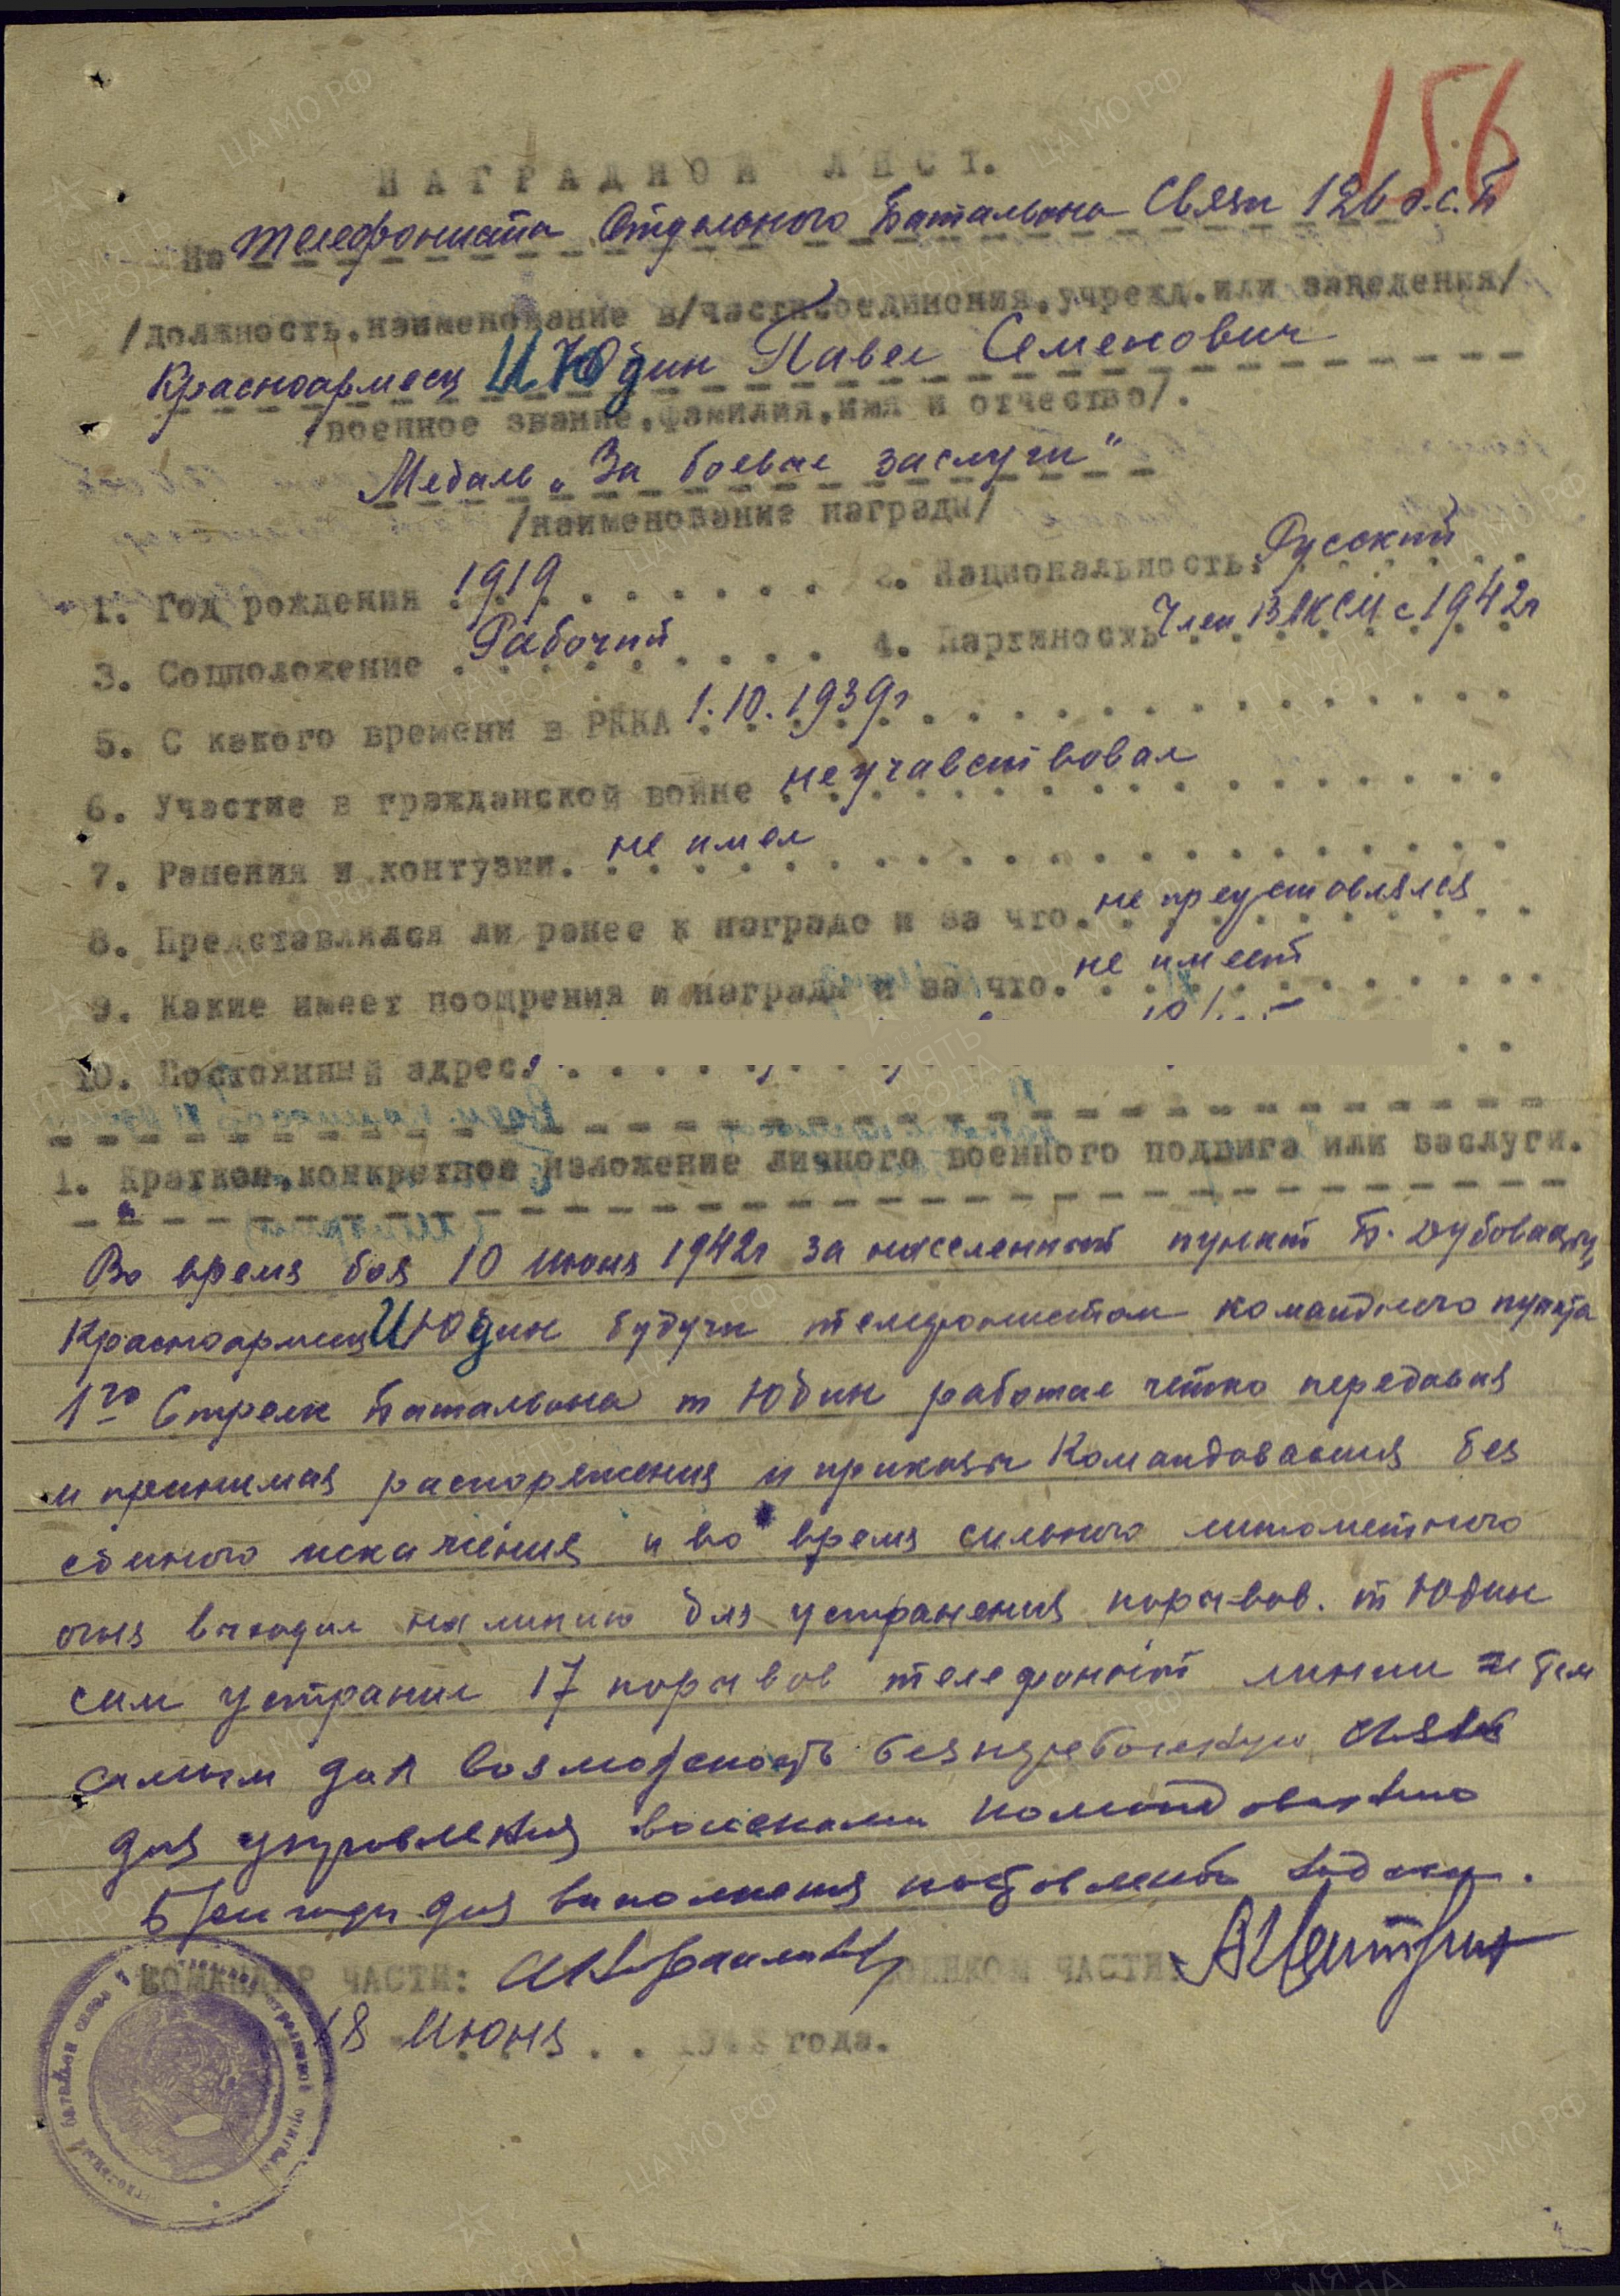 156
НАГРАДНОЙ ЛИСТ.
На телефониста Отдельного Батальона Связи 126 о.с.Б
/должность, наименование в/части соединения, учрежд. или заведения/
Красноармеец ИЮдин Павел Семенович
/военное звание, фамилия, имя и отчество/.
Медаль „За боевые заслуги"
/наименование награды/
1. Год рождения 1919 2. Национальность. Русский
3. Соцположение Рабочий 4. Партийность Член ВЛКСМ с 1942г
5. С какого времени в РККА 1.10.1939г
6. Участие в гражданской войне не учавствовал
7. Ранения и контузии. не имел
8. Представлялся ли ранее к награде и за что. не предстовлялся
9. Какие имеет поощрения и награды и за что. не имеет
10. Постоянный адрес.
1. Краткое, конкретное изложение личного военного подвига или заслуги.
Во время боя 10 июня 1942г за населенный пункт Б. Дубовицу,
Красноармеец ИЮдин будучи телефонистом командного пункта
1го Стрелк Батальона т Юдин работал четко передавая
и принимая распоряжения и приказы Командования без
единого искажения и во время сильного минометного
огня выходил на линию для устранения порывов. т Юдин
сам устранил 17 порывов телефонной линии и тем
самым дал возможность безперебойную связь
для управления войсками командованию
Бригады для выполнения поставленой задачи.
КОМАНДИР ЧАСТИ: ВОЕНКОМ ЧАСТИ:
18 Июня . . 1942 года.